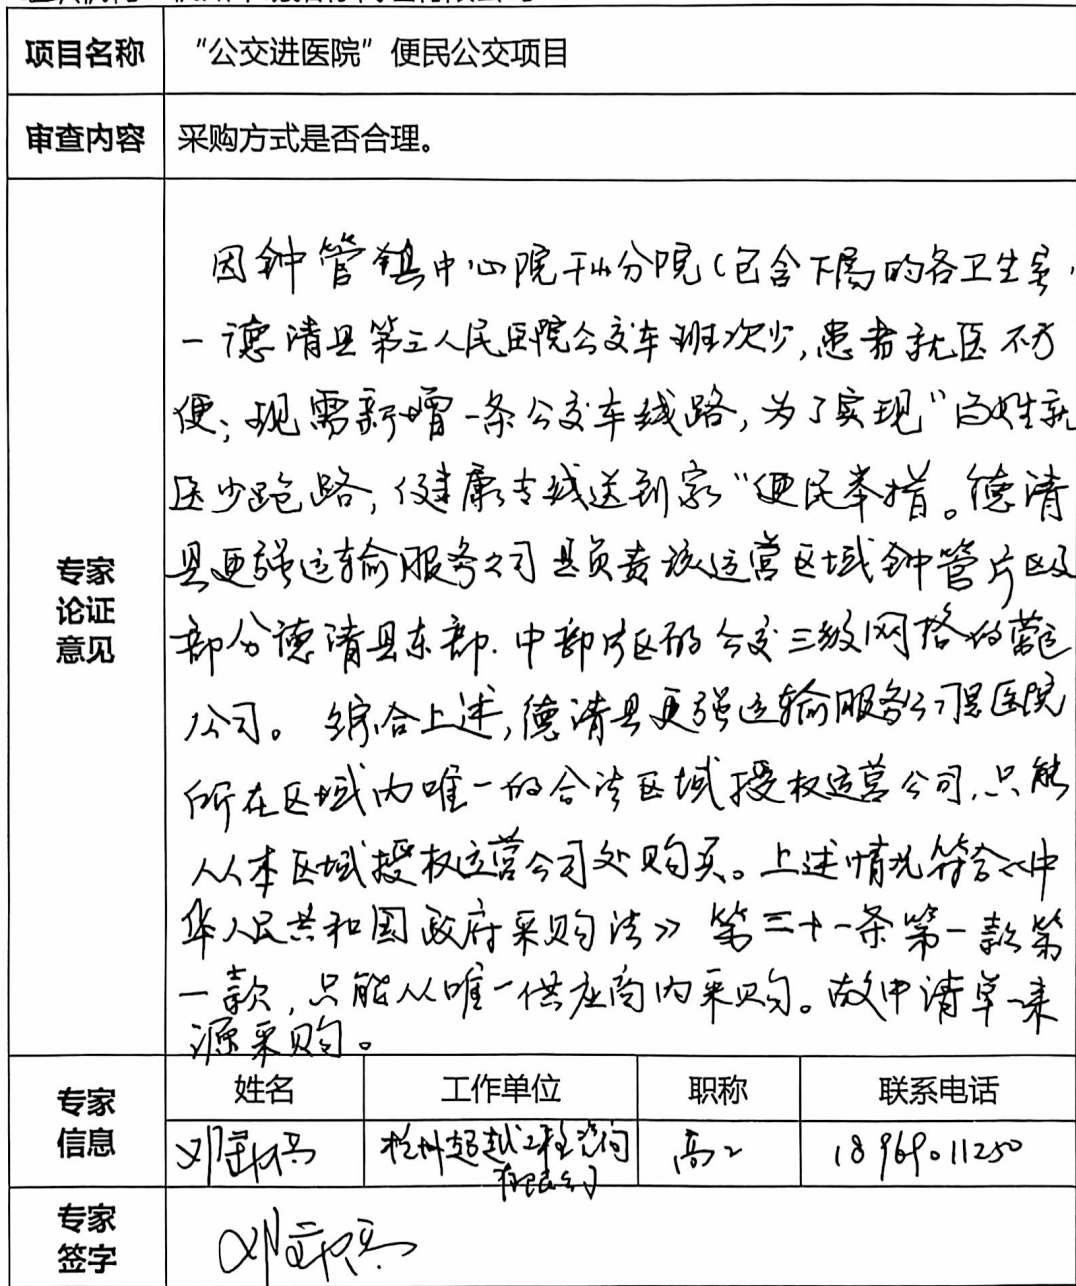 项目名称 “公交进医院”便民公交项目
审查内容 采购方式是否合理。
专家
论证
意见
因钟管镇中心院干山分院(包含下属的各卫生室,
一德清县第三人民医院公交车班次少,患者就医不方
便,现需新增一条公交车线路,为了实现“百姓就
医少跑路,健康专线送到家”便民举措。德清
县更强运输服务公司是负责该运营区域钟管片区及
部分德清县东部.中部片区的公交三级网格的营运
公司。综合上述,德清县更强运输服务公司是医院
所在区域内唯一的合法区域授权运营公司,只能
从本区域授权运营公司处购买。上述情况符合《中
华人民共和国政府采购法》第三十一条第一款第
一款,只能从唯一供应商内采购。故申请单一来
源采购。
专家
信息
姓名 工作单位 职称 联系电话
杭州超越工程咨询
有限公司
高工
专家
签字